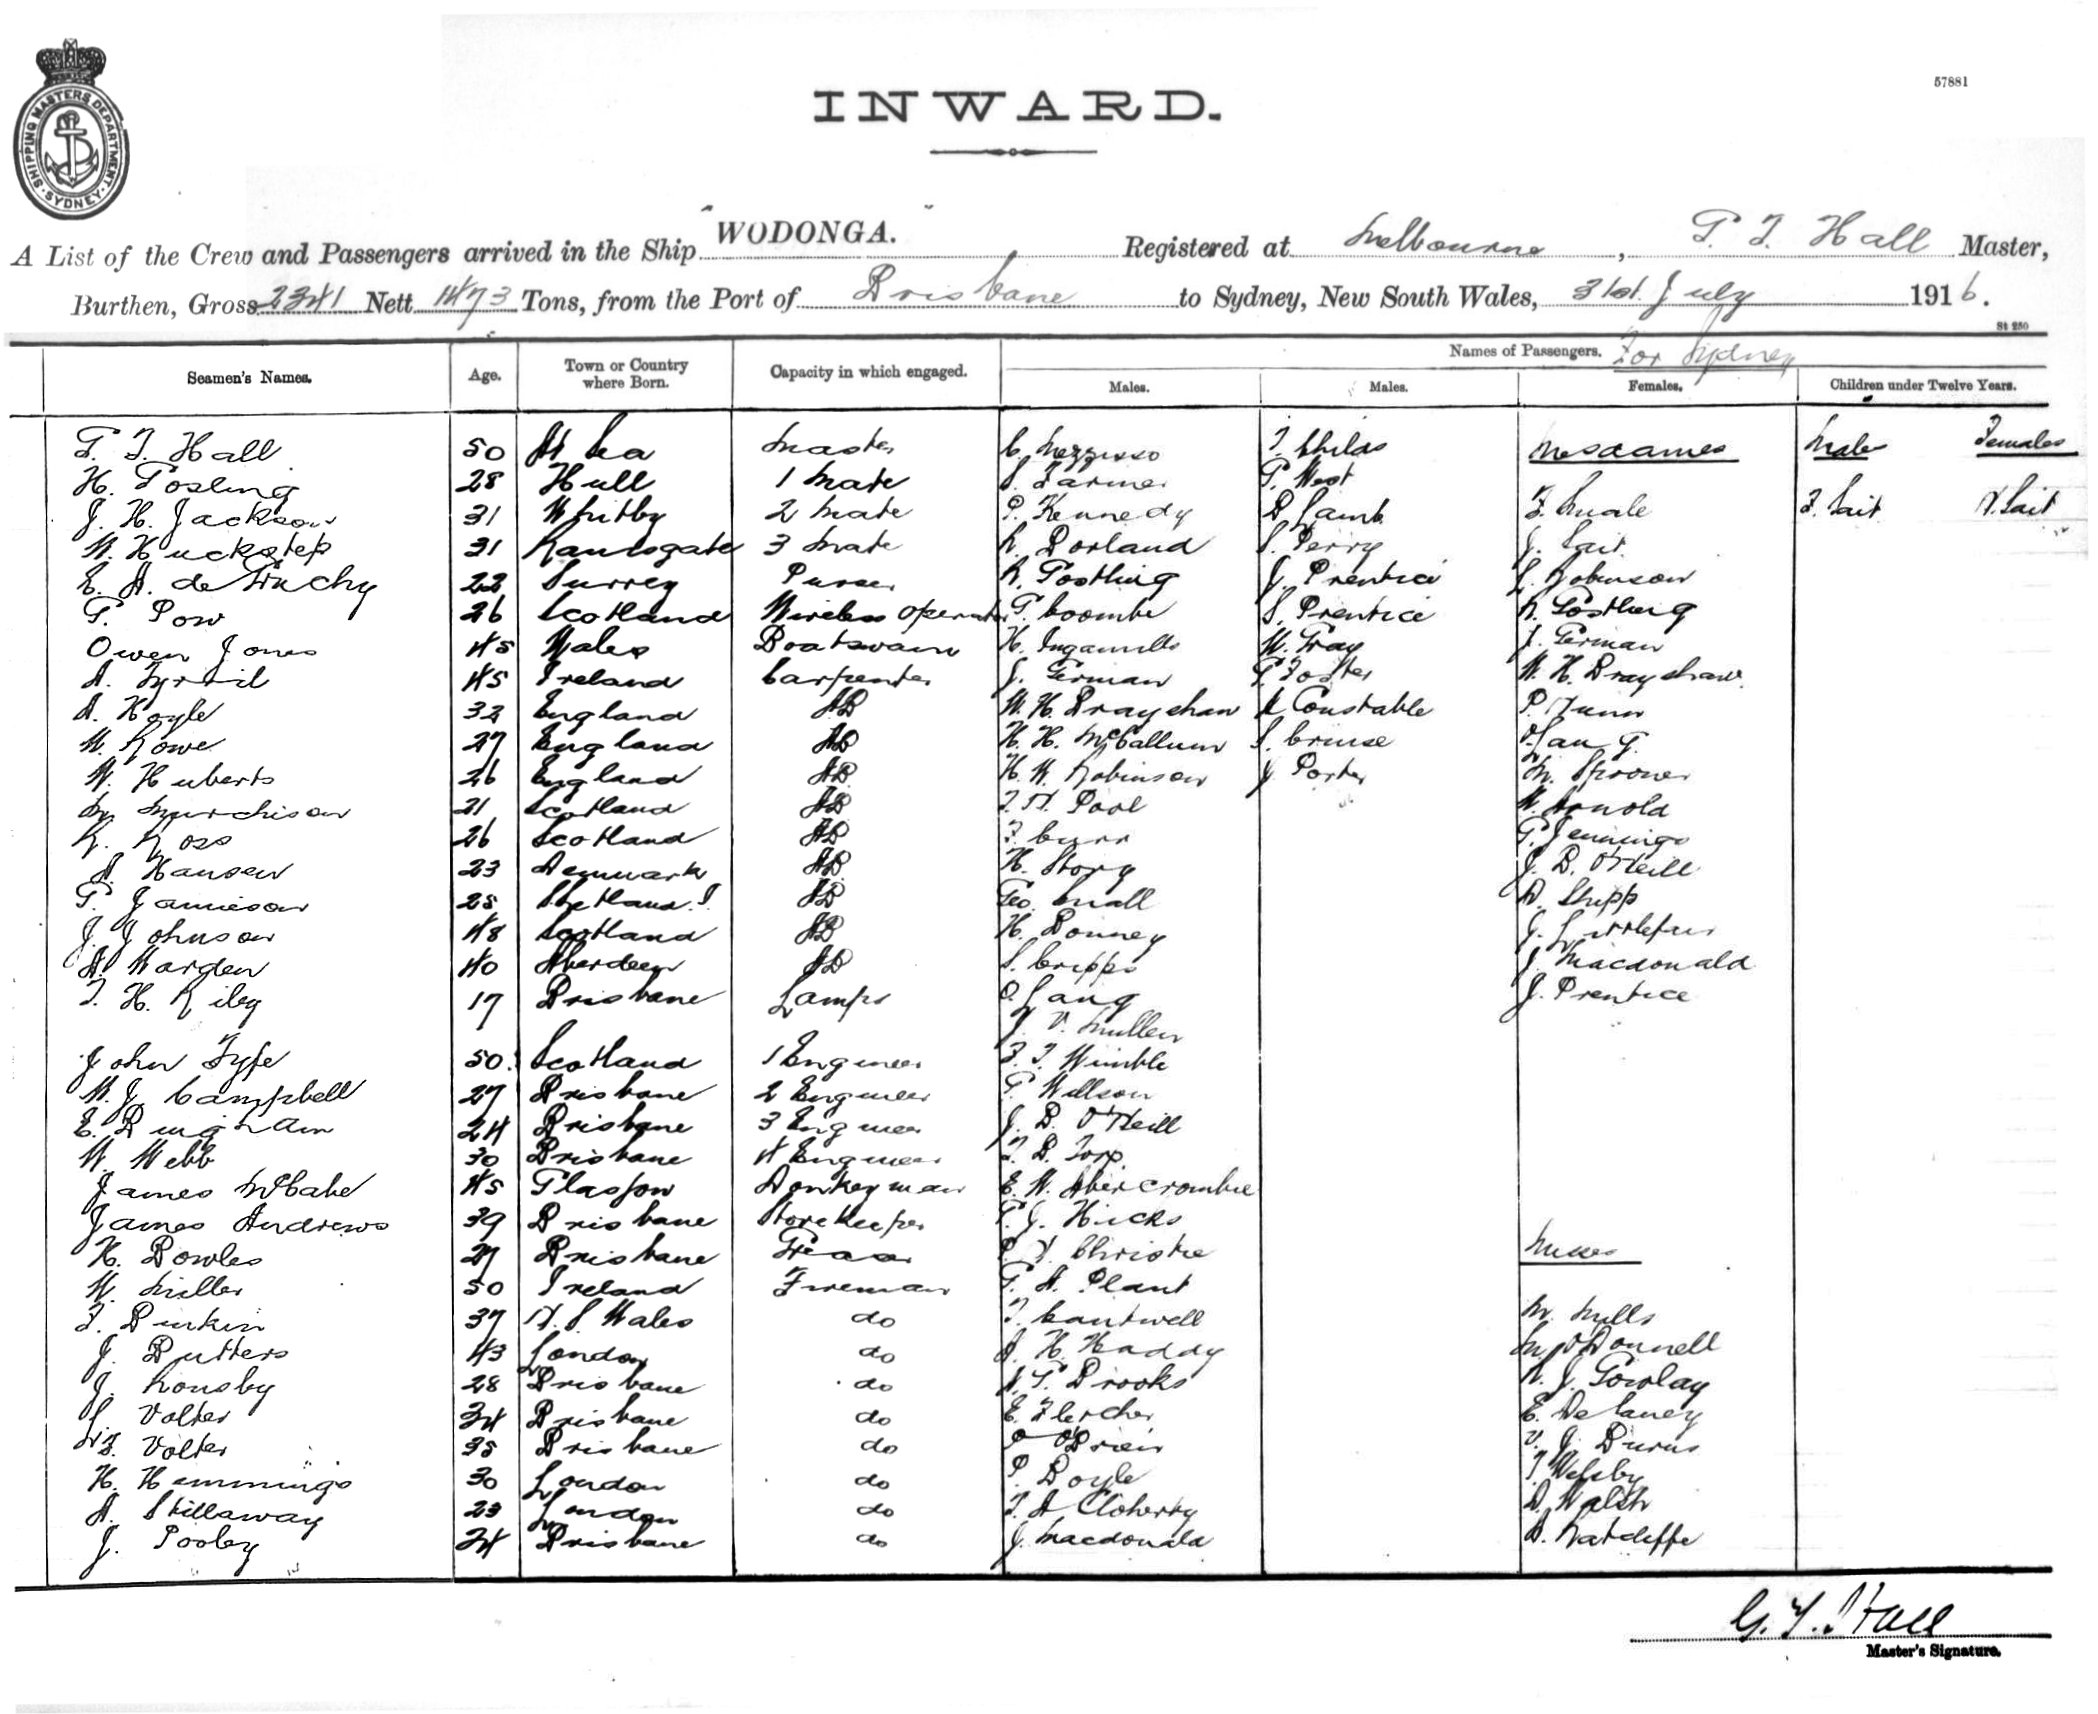 SHIPPING MASTERS DEPARTMENT · SYDNEY ·
57881
INWARD.
A List of the Crew and Passengers arrived in the Ship "WODONGA." Registered at Melbourne, G. T. Hall Master,
Burthen, Gross 2341 Nett 1473 Tons, from the Port of Brisbane to Sydney, New South Wales, 31st July 1916.
St 250
Seamen's Names. Age. Town or Country where Born. Capacity in which engaged. Names of Passengers. For Sydney
Males. Males. Females. Children under Twelve Years.
G. T. Hall 50 At Sea Master C. T. Childs Mesdames Male Females
H. Gosling 28 Hull 1 Mate S. Farmer G. West
J. H. Jackson 31 Whitby 2 Mate P. Kennedy D Lamb F. Sait N. Sait
W. Huckstep 31 Ramsgate 3 Mate R. Borland S. Perry J. Sait
E. A. de Gruchy 22 Surrey Purser R. Gostling J. Prentice L. Robinson
G. Pow 26 Scotland Wireless Operator G. Coombe S. Prentice R. Gostling
Owen Jones 45 Wales Boatswain H. Ingamells W. Gray J. German
A. 45 Ireland Carpenter J. German G. Foster W. H. Brayshaw
A. Hoyle 32 England AB W. H. Brayshaw A Constable P. Nunn
W. Rowe 27 England AB H. H. McCallum S. Cruise Lang
W. Huberts 26 England AB H. W. Robinson J Porter M. Spooner
M Murchison 21 Scotland AB T. N. Pool W. Arnold
R. Ross 26 Scotland AB F. Curr G. Jennings
A. Hansen 23 Denmark AB H. Story J. B. O'Neill
G. Jamieson 25 Shetland I. AB Geo. Small A. Shipp
J. Johnson 48 Scotland AB H. Bonney J.
A. Warden 40 Aberdeen AB S. Cripps J. Macdonald
T. H. Riley 17 Brisbane Lamps O. Lang J. Prentice
J. V. Mullen
John Fyfe 50 Scotland 1 Engineer F. T. Wimble
W. J. Campbell 27 Brisbane 2 Engineer G. Willson
E. Bingham 24 Brisbane 3 Engineer J. B. O'Neill
W. Webb 30 Brisbane 4 Engineer T. B.
James McCabe 45 Glasgow Donkeyman E. W. Abercrombie
James Andrews 39 Brisbane Storekeeper G. J. Hicks
H. Bowles 27 Brisbane Greaser P. N. Christie Misses
W. Miller 50 Ireland Fireman G. A. Plant
T. Durkin 37 N. S Wales do T. Cantwell M. Mills
J. Butters 43 London do A. H. Haddy M. O'Donnell
J. Lonsby 28 Brisbane do A. G. Brooks R. J. Gowlay
L. Volter 34 Brisbane do E. Fletcher E. Delaney
Volter 35 Brisbane do O'Brien V. J. Burns
H. Hemmings 30 London do P. Boyle T. Welsby
A. Skillaway 23 London do T. A Cloherty D. Walsh
J. Pooley 24 Brisbane do J. Macdonald A. Ratcliffe
G. T. Hall
Master's Signature.